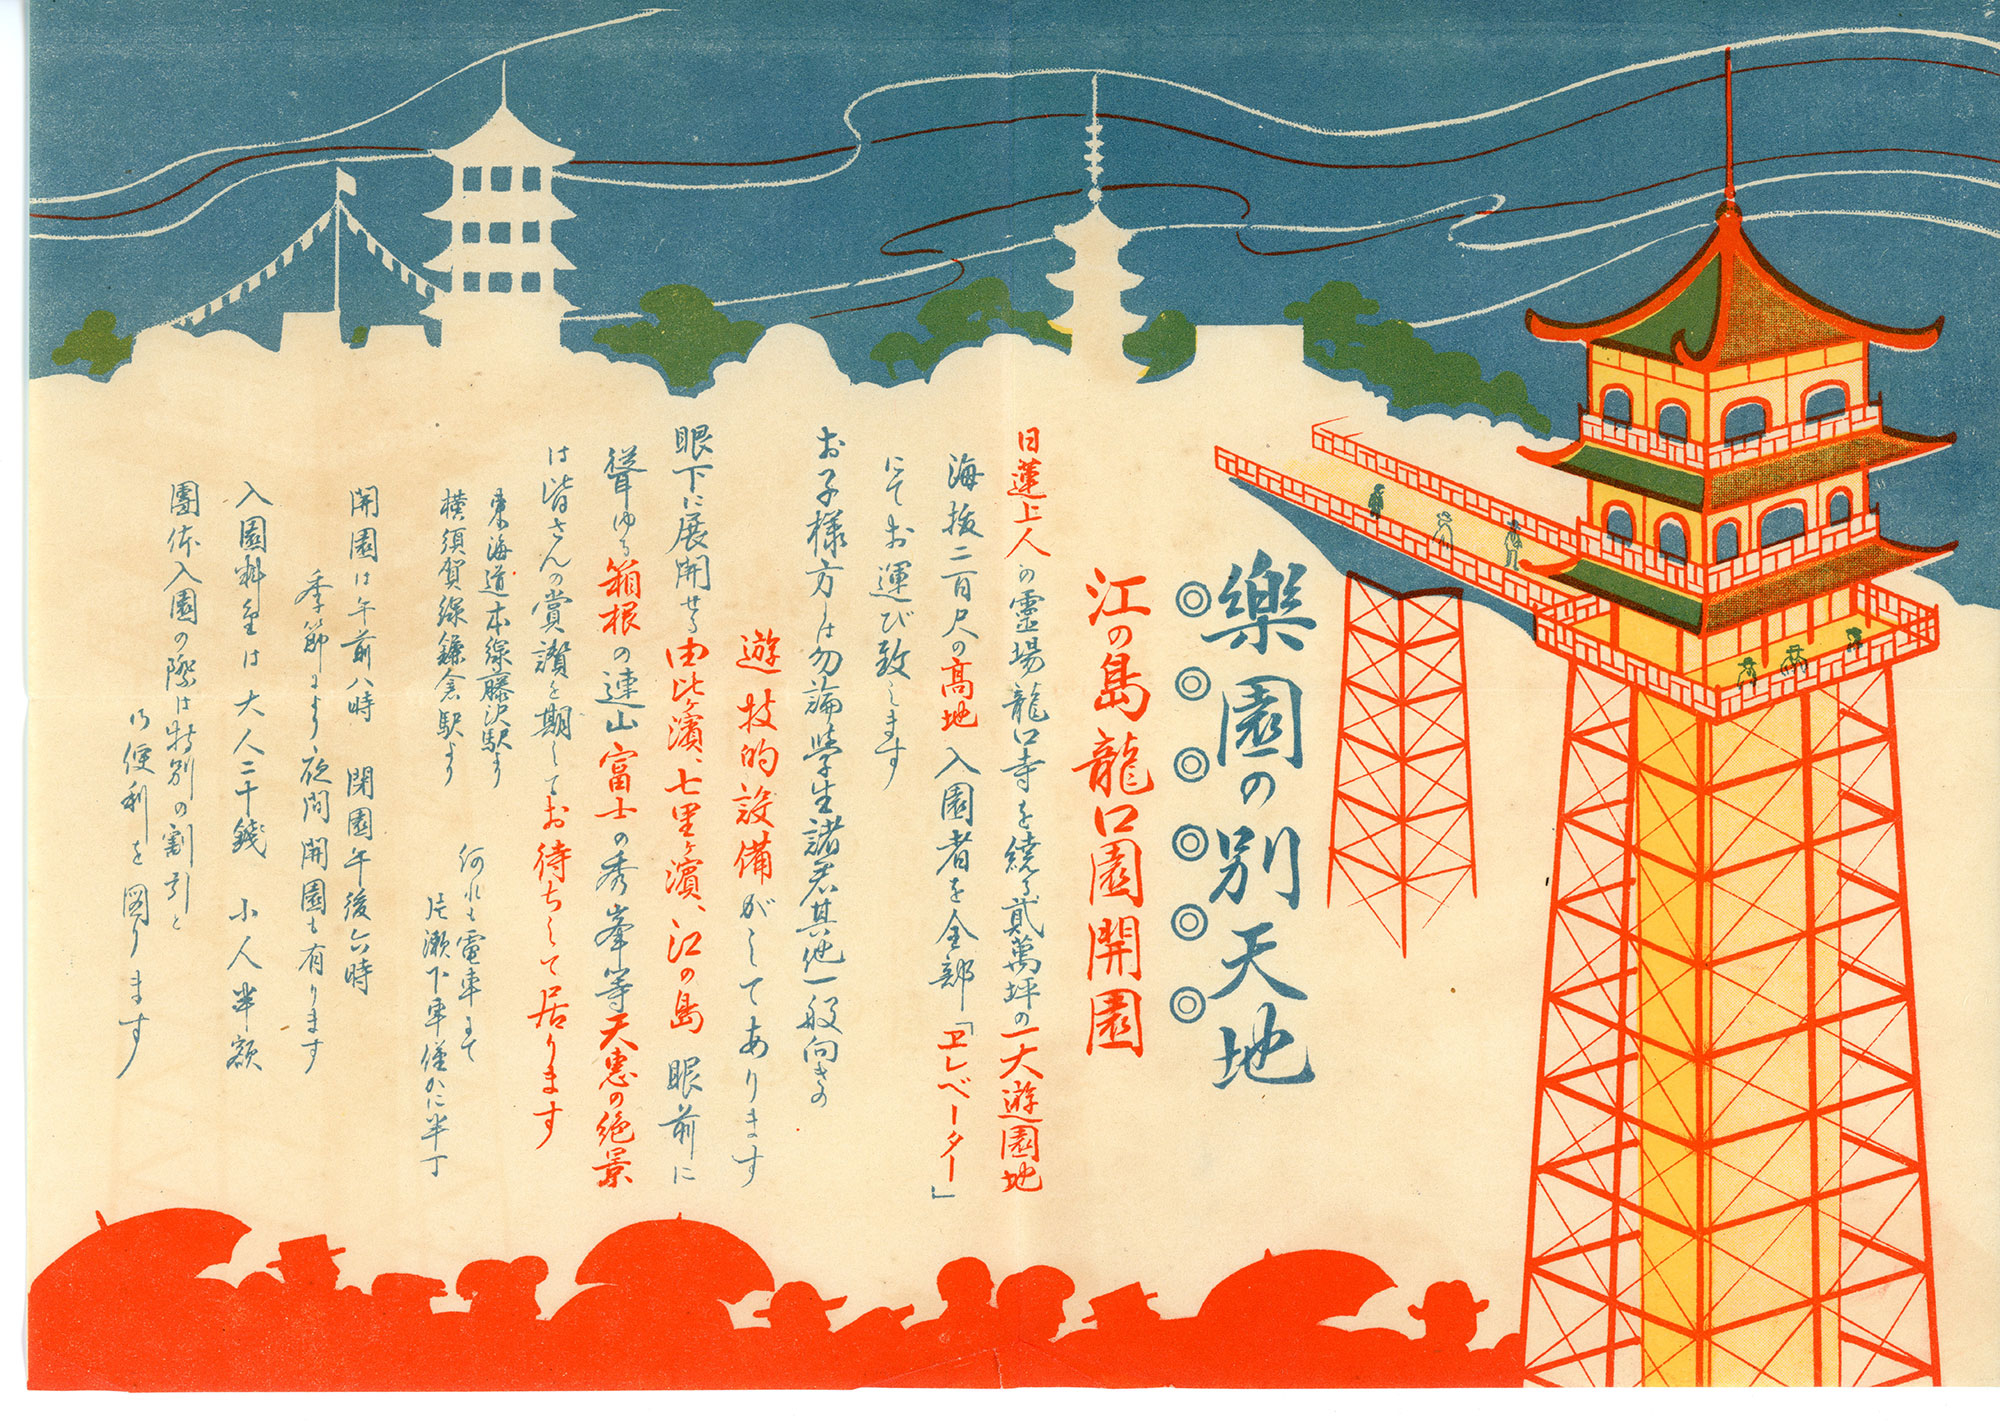 樂園の別天地
◎◎◎◎◎◎
江の島龍口園開園
日蓮上人の靈場龍口寺を繞る貳萬坪の一大遊園地
海抜二百尺の高地入園者を全部「ヱレベーター」
にてお運び致します
お子様方は勿論學生諸君其他一般向きの
遊技的設備がしてあります
眼下に展開せる由比ヶ濱、七里ヶ濱、江の島眼前に
聳ゆる箱根の連山富士の秀峯等天惠の絶景
は皆さんの賞讃を期してお待ちして居ります
東海道本線藤沢駅より
横須賀線鎌倉駅より
何れも電車にて
片瀬下車僅かに半丁
開園は午前八時 閉園午後六時
季節により夜間開園も有ります
入園料金は大人二十錢 小人半額
團体入園の際は特別の割引と
乃便利を図ります